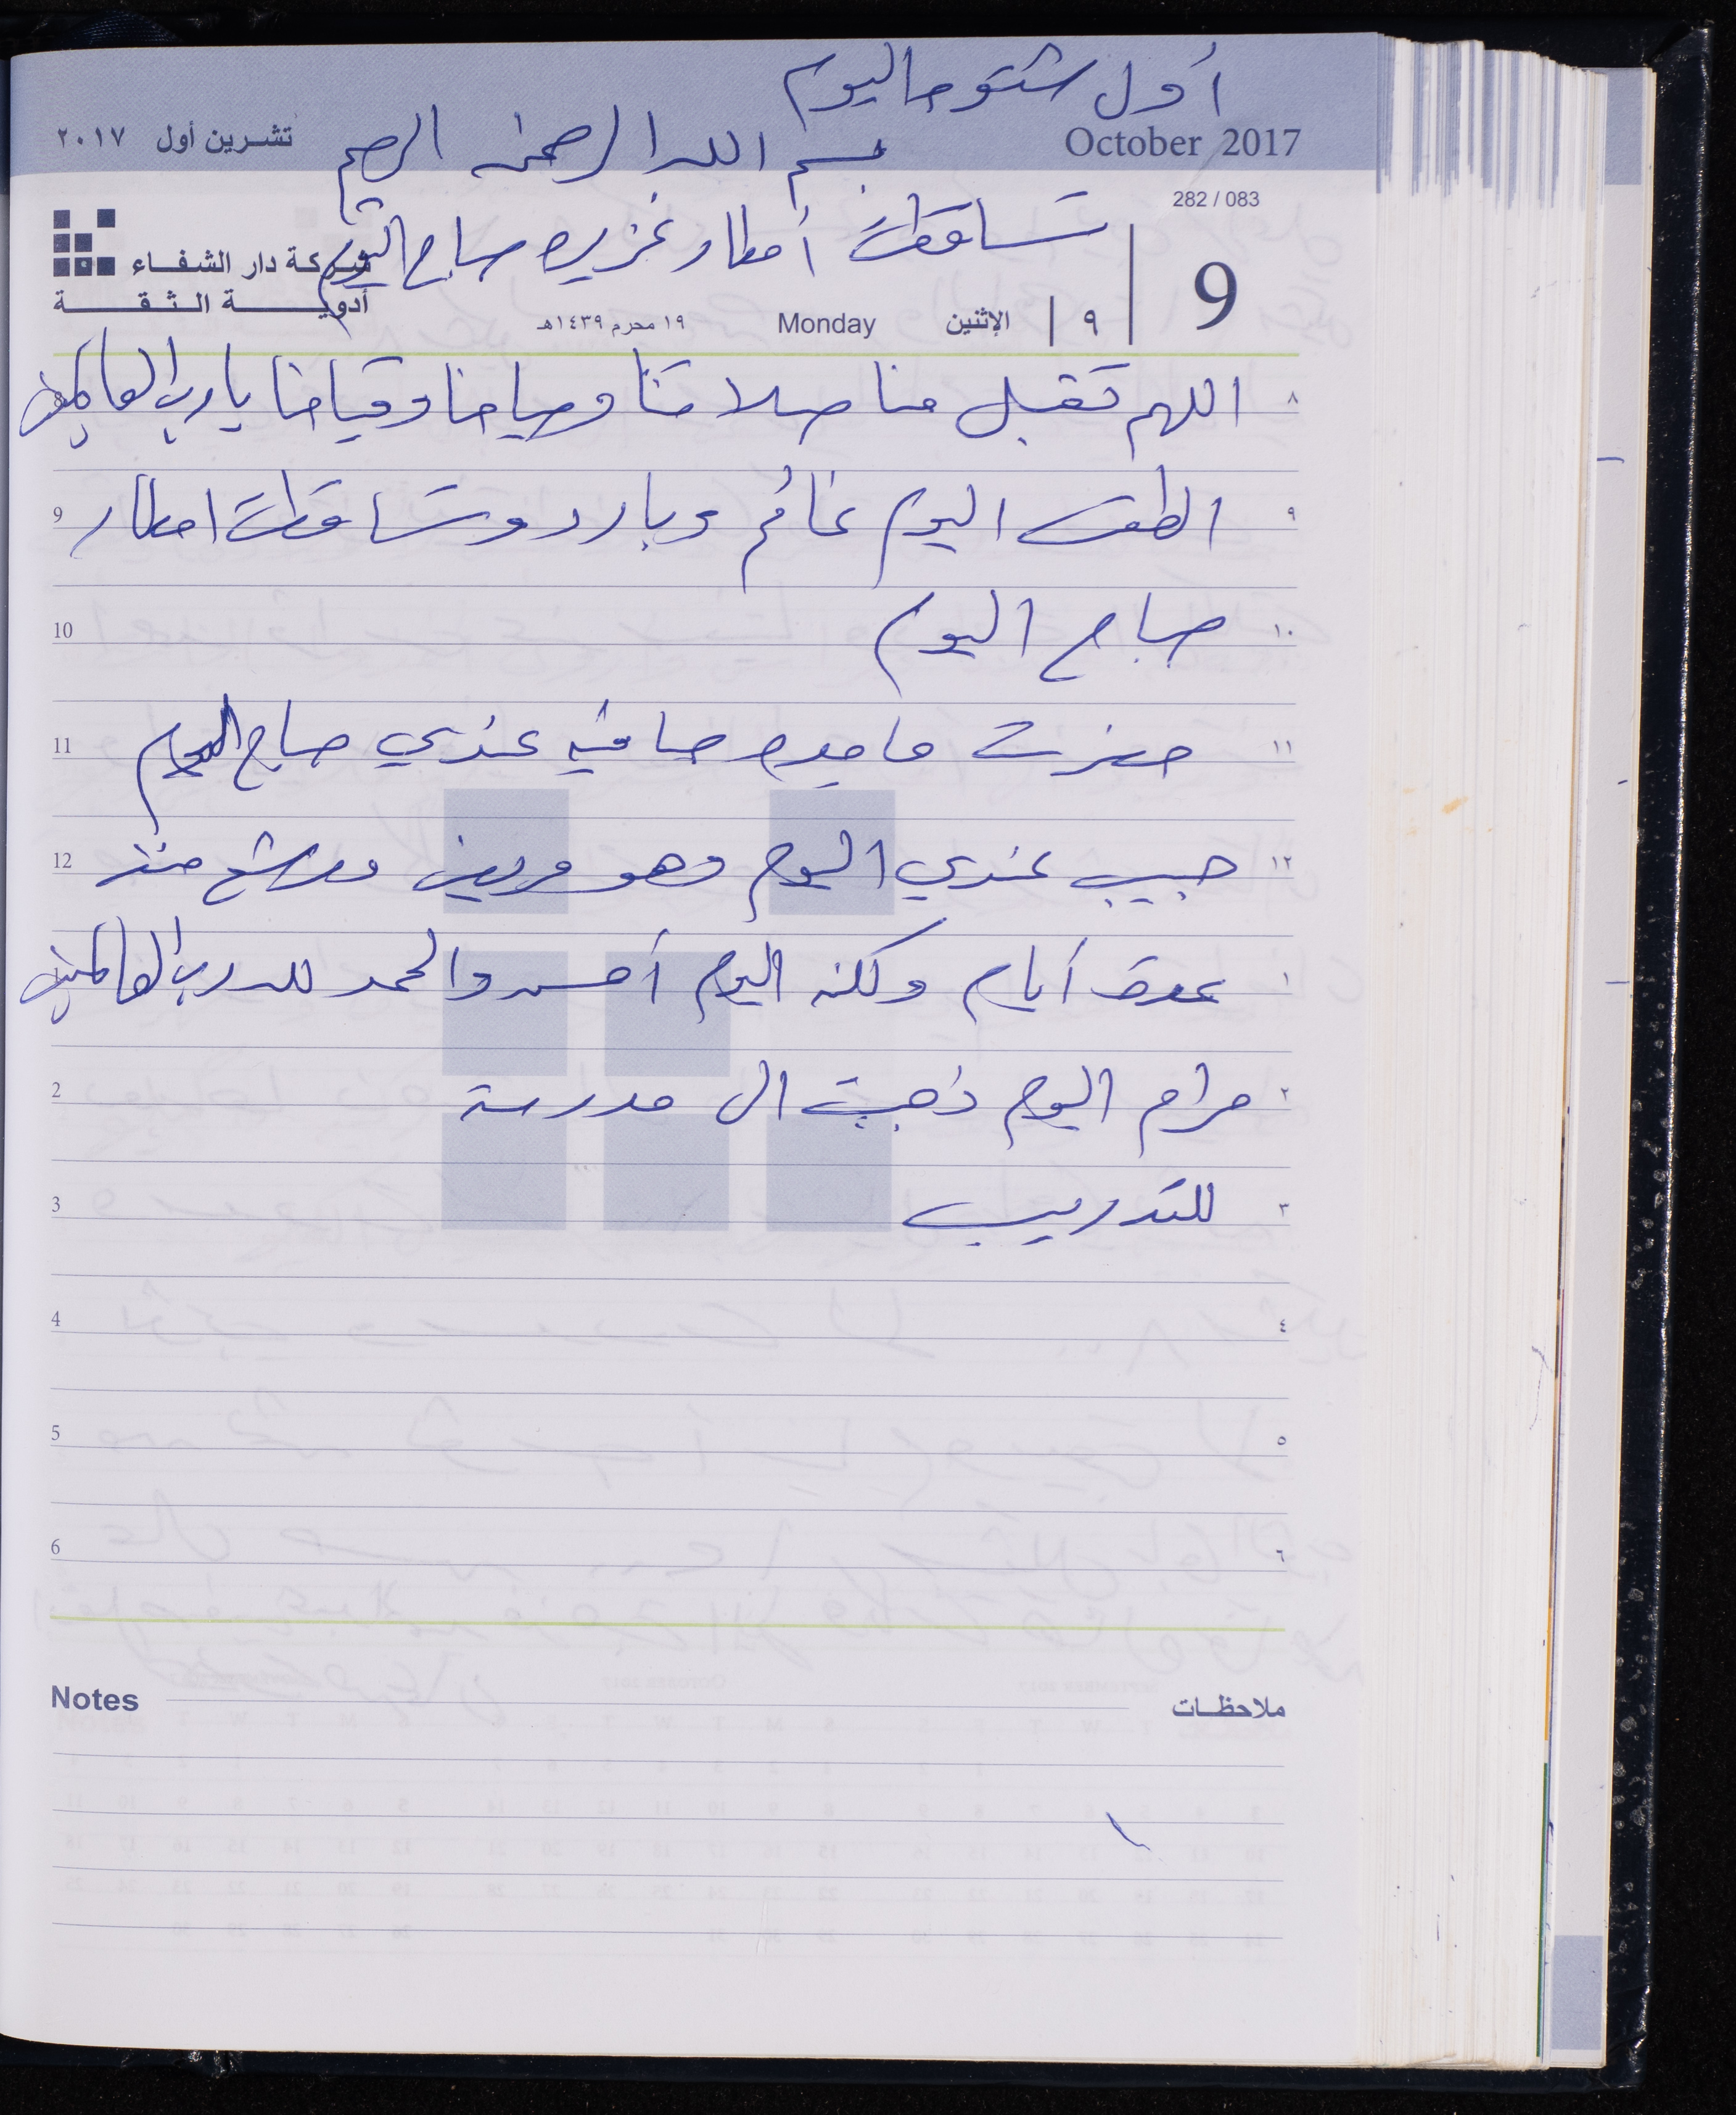 أول شتوه اليوم
October 2017
تشرين أول ٢٠١٧
بسم الله الرحمن الرحيم
282 / 083
تساقطت أمطار غزيره صباح اليوم
شركة دار الشفاء
أدوية الثقة
9
٩
الإثنين
Monday
١٩ محرم ١٤٣٩هـ
٨ اللهم تقبل منا صلاتنا وصيامنا وقيامنا يا رب العالمين 8
٩ الطقس اليوم غائم وبارد وتساقطت امطار 9
١٠ صباح اليوم 10
١١ خبزت صباح اليوم 11
١٢ حبيب عندي اليوم وهو مريض ومرشح منذ 12
١ عدة أيام ولكنه اليوم أحسن والحمد لله رب العالمين
٢ مرام اليوم ذهبت الى مدرسة 2
٣ للتدريب 3
٤ 4
٥ 5
٦ 6
Notes ملاحظات